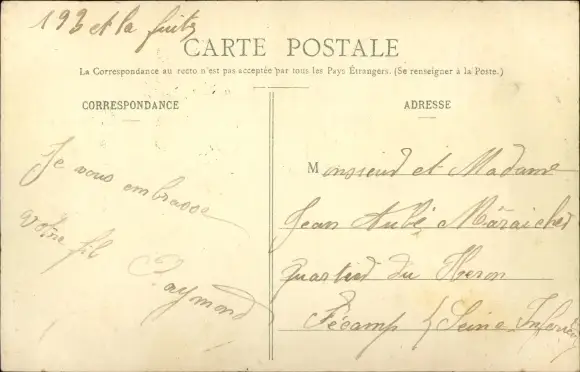 193 et la fuite
CARTE POSTALE
La Correspondance au recto n'est pas acceptée par tous les Pays Étrangers. (Se renseigner à la Poste.)
CORRESPONDANCE
Je vous embrasse
votre fil
Raymond
ADRESSE
Monsieur et Madame
Jean Aubé Maraicher
quartier du Heron
Fécamp / Seine Inferieure